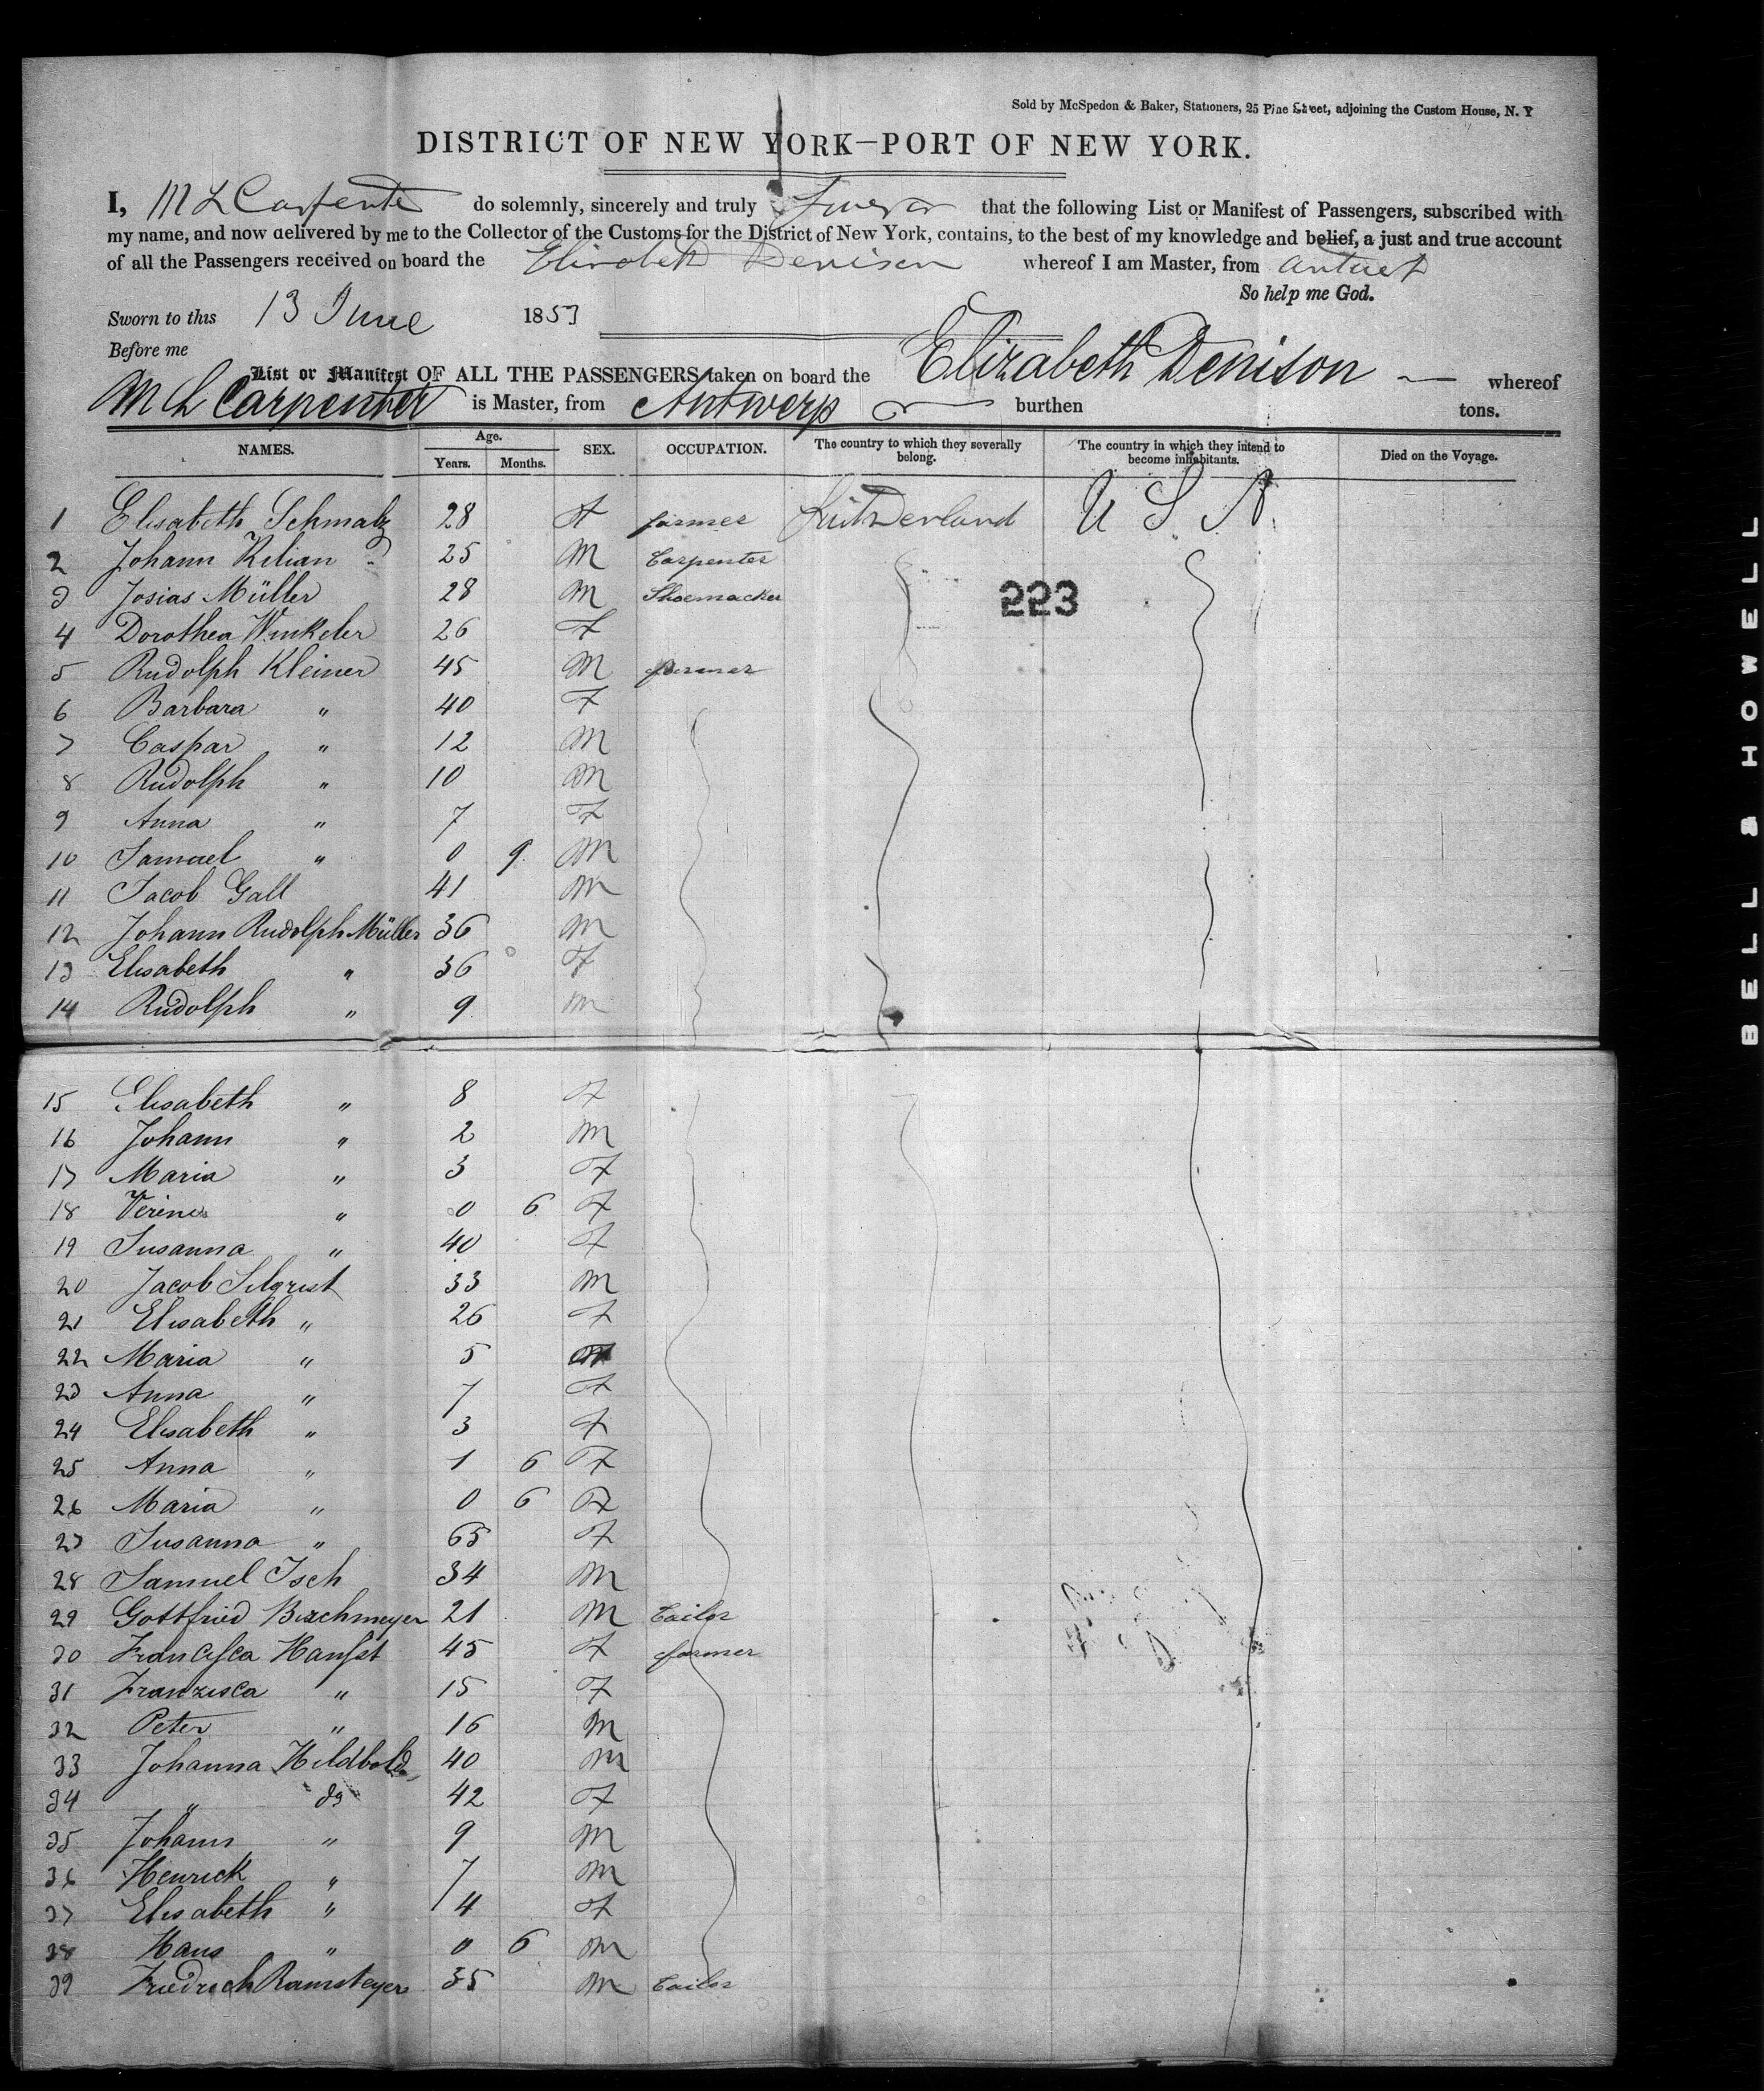 Sold by McSpedon & Baker, Stationers, 25 Pine Street, adjoining the Custom House, N. Y
DISTRICT OF NEW YORK—PORT OF NEW YORK.
I, M L Carpenter do solemnly, sincerely and truly swear that the following List or Manifest of Passengers, subscribed with
my name, and now delivered by me to the Collector of the Customs for the District of New York, contains, to the best of my knowledge and belief, a just and true account
of all the Passengers received on board the Elizabeth Denison whereof I am Master, from
So help me God.
Sworn to this 13 June 1853
Before me
List or Manifest OF ALL THE PASSENGERS taken on board the Elizabeth Denison — whereof
M L Carpenter is Master, from Antwerp burthen tons.
NAMES. Age. Years. Months. SEX. OCCUPATION. The country to which they severally belong. The country in which they intend to become inhabitants. Died on the Voyage.
1 Elisabeth Schmalz 28 F farmer Switzerland U S A
2 Johann Kilian 25 M Carpenter
3 Josias Müller 28 M Shoemacker
223
4 Dorothea Winkeler 26 F
5 Rudolph Kleiner 45 M farmer
6 Barbara " 40 F
7 Caspar " 12 M
8 Rudolph " 10 M
9 Anna " 7 F
10 Samuel " 0 9 M
11 Jacob Gall 41 M
12 Johann Rudolph Müller 36 M
13 Elisabeth " 36 F
14 Rudolph " 9 M
15 Elisabeth " 8 F
16 Johann " 2 M
17 Maria " 3 F
18 " 0 6 F
19 Susanna " 40 F
20 Jacob Silgrist 33 M
21 Elisabeth " 26 F
22 Maria " 5
23 Anna " 7 F
24 Elisabeth " 3 F
25 Anna " 1 6 F
26 Maria " 0 6 F
27 Susanna " 65 F
28 Samuel Isch 34 M
29 Gottfried Birchmeyer 21 M Tailor
30 Francisca 45 F farmer
31 Franzisca " 15 F
32 Peter " 16 M
33 Johanna Hildbold 40 M
34 " do 42 F
35 Johann " 9 M
36 Henrick " 7 M
37 Elisabeth " 4 F
38 Hans " 0 6 M
39 Friedrich Ramsteyer 35 M Tailor
BELL & HOWELL